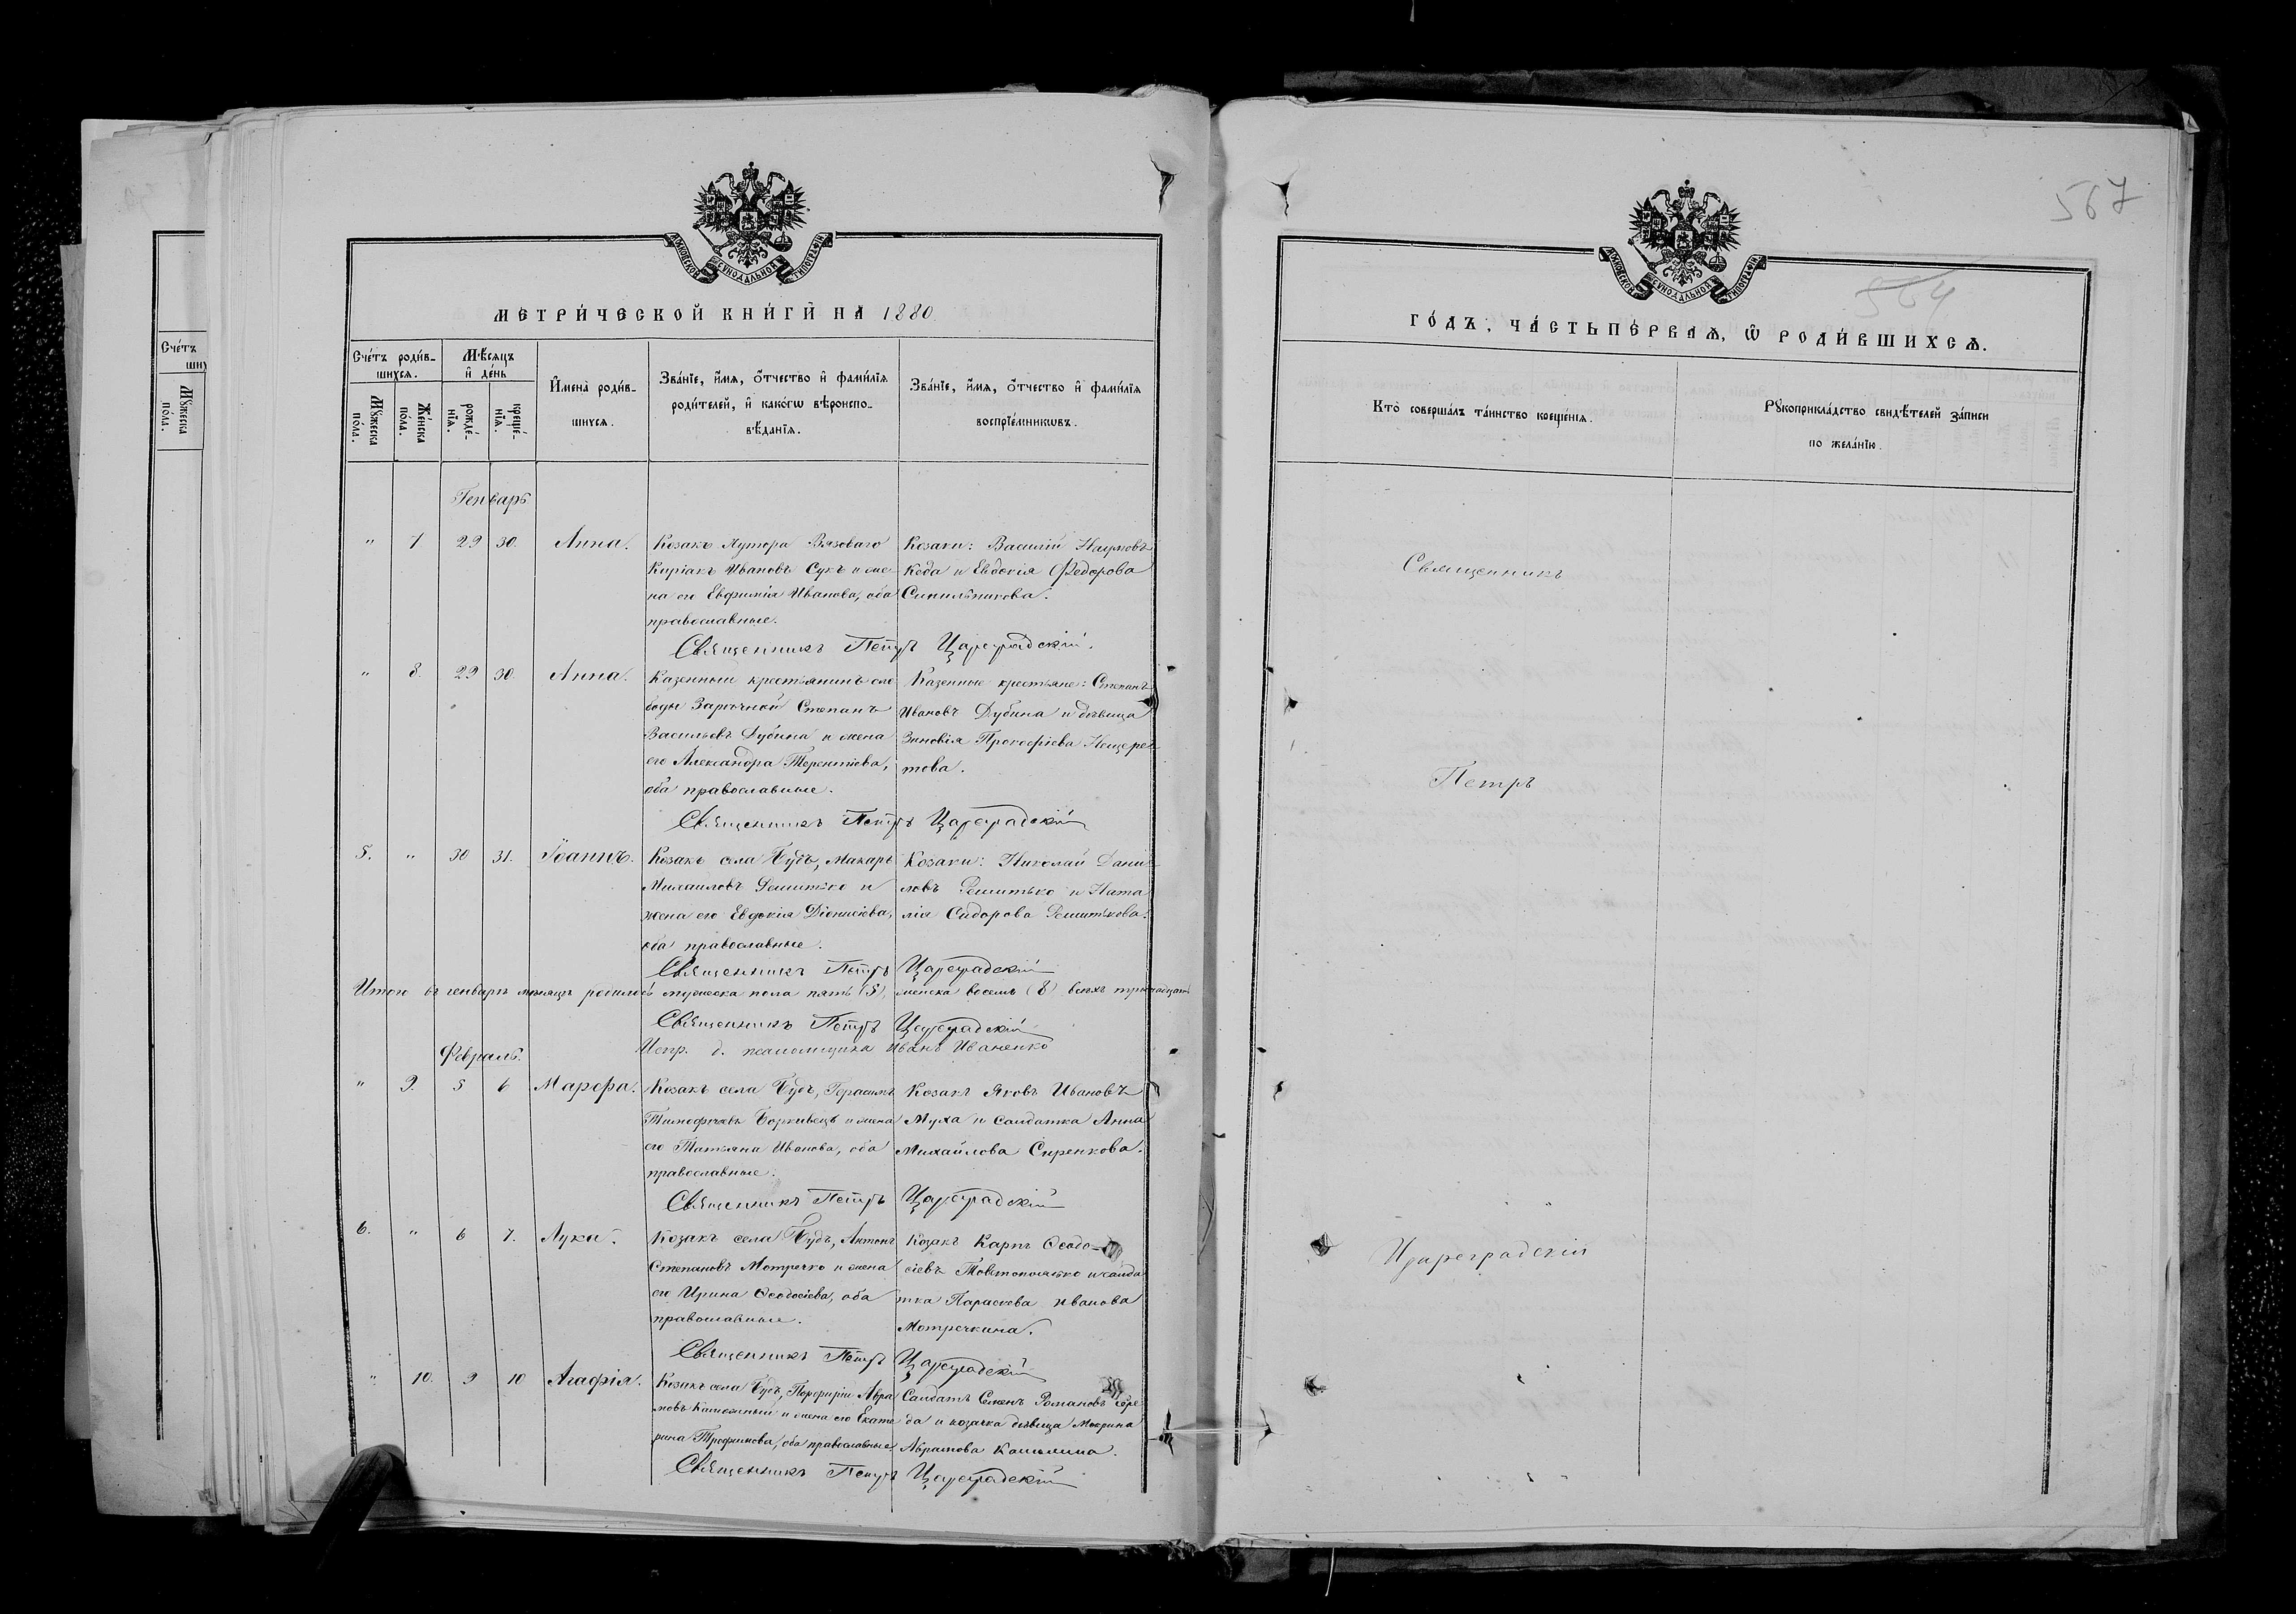 МЕТРИ́ЧЕСКОЙ КНИ́ГИ НА 1880
Счéтъ роди́в-
шихсѧ.
Мѣ́сѧцъ
и҆ дéнь
И҆мена̀ роди́в-
шихсѧ.
Звáнїе, и҆́мѧ, ѻ҆́тчество и҆ фами́лїѧ
роди́телей, и҆ какóгѡ вѣроиспо-
вѣ́данїѧ.
Звáнїе, и҆́мѧ, ѻ҆́тчество и҆ фами́лїѧ
воспрїéмникѡвъ.
Мꙋ́жеска
пóла.
Жéнска
пóла.
рождé-
нїѧ.
крещé-
нїѧ.
Генварь
" 7 29 30. Анна.
Козакъ Хутора Вязоваго
Киріакъ Ивановъ Сукъ и же-
на его Евфимія Иванова, оба
православные.
Козаки: Василій Наумовъ
Кода и Евдокія Федорова
Синильникова.
Священникъ Петръ Цареградскій.
" 8. 29 30. Анна.
Казенный крестьянинъ сло
боды Заречной Степанъ
Васильевъ Дубина и жена
его Александра Терентіева,
оба православные.
Казенные крестьяне: Степанъ
Ивановъ Дубина и дѣвица
Зиновія Прокофіева Нещере
това.
Священникъ Петръ Цареградскій
5. " 30 31. Іоаннъ.
Козакъ села Будъ, Макаръ
Михаиловъ Решитько и
жена его Евдокія Діонисіева,
оба православные.
Козаки: Николай Дани
ловъ Решитько и Ната
лія Сидорова Решитькова.
Священникъ Петръ Цареградскій
Итого въ генварѣ мѣсяцѣ родилось мужеска пола пять (5), женска восемь (8) всѣхъ тринадцать
Священникъ Петръ Цареградскій
Испр. д. псаломщика Иванъ Иваненко
Февраль.
" 9. 5 6 Марфа.
Козакъ села Будъ, Герасимъ
Тимофѣевъ Борківецъ и жена
его Татьяна Иванова, оба
православные.
Козакъ Яковъ Ивановъ
Муха и солдатка Анна
Михайлова Сиренкова.
Священникъ Петръ Цареградскій
6. " 6 7. Лука.
Козакъ села Будъ, Антонъ
Степановъ Мотречко и жена
его Ирина Ѳеодосіева, оба
православные.
Козакъ Карпъ Ѳеодо-
сіевъ и солда
тка Параскева Иванова
Мотречкина.
Священникъ Петръ Цареградскій
" 10. 9 10 Агафія.
Козакъ села Будъ, Порфирій Авра
мовъ и жена его Екате
рина Трофимова, оба православные.
Солдатъ Семенъ Романовъ Сере
да и козачка дѣвица Мокрина
Аврамова
Священникъ Петръ Цареградскій
567
564
ГÓДЪ, ЧÁСТЬ ПÉРВАѦ, Ѡ҆ РОДИ́ВШИХСѦ.
Кто̀ совершáлъ тáинство крещéнїѧ.
Рꙋкоприклáдство свидѣ́телей зáписи
по желáнїю.
Священникъ
Петръ
Цареградскій